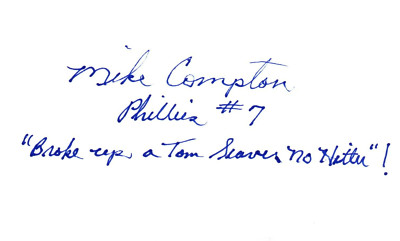 Mike Compton
Phillies #7
"Broke up a Tom Seaver No Hitter"!